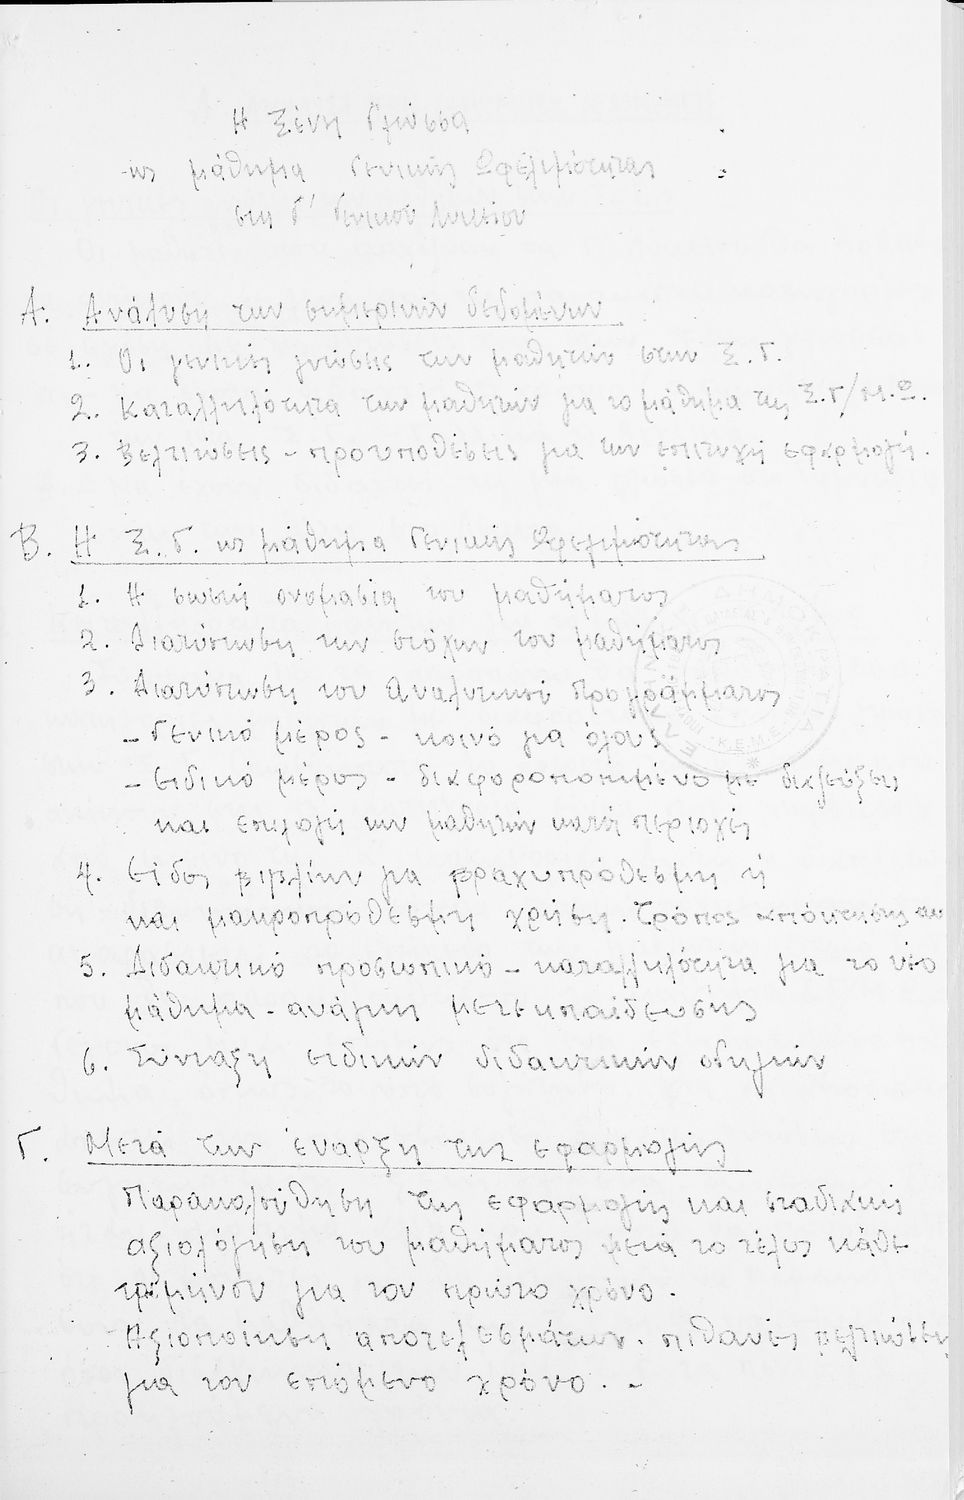 Η Ξένη Γλώσσα
ως μάθημα Γενικής Ωφελιμότητας
στη Γ' Γενικού Λυκείου
Α. Ανάλυση των σημερινών δεδομένων
1. Οι γενικές γνώσεις των μαθητών στην Ξ.Γ.
2. Καταλληλότητα των μαθητών για το μάθημα της Ξ.Γ/Μ.Ω.
3. Βελτιώσεις - προϋποθέσεις για την επιτυχή εφαρμογή.
Β. Η Ξ.Γ. ως μάθημα Γενικής Ωφελιμότητας
1. Η σωστή ονομασία του μαθήματος
2. Διατύπωση των στόχων του μαθήματος
3. Διατύπωση του Αναλυτικού Προγράμματος
- Γενικό μέρος - κοινό για όλους
- Ειδικό μέρος - διαφοροποιημένο με διαζεύξεις
και επιλογή των μαθητών κατά περιοχές
4. Είδος βιβλίων για βραχυπρόθεσμη ή
και μακροπρόθεσμη χρήση. Τρόπος απόκτησης
5. Διδακτικό προσωπικό - καταλληλότητα για το νέο
μάθημα - ανάγκη μετεκπαίδευσης
6. Σύνταξη ειδικών διδακτικών οδηγιών
Γ. Μετά την έναρξη της εφαρμογής
Παρακολούθηση της εφαρμογής και σταδιακή
αξιολόγηση του μαθήματος μετά το τέλος κάθε
τριμήνου για τον πρώτο χρόνο.
Αξιοποίηση αποτελεσμάτων. πιθανές βελτιώσεις
για τον επόμενο χρόνο. -
Κ.Ε.Μ.Ε.